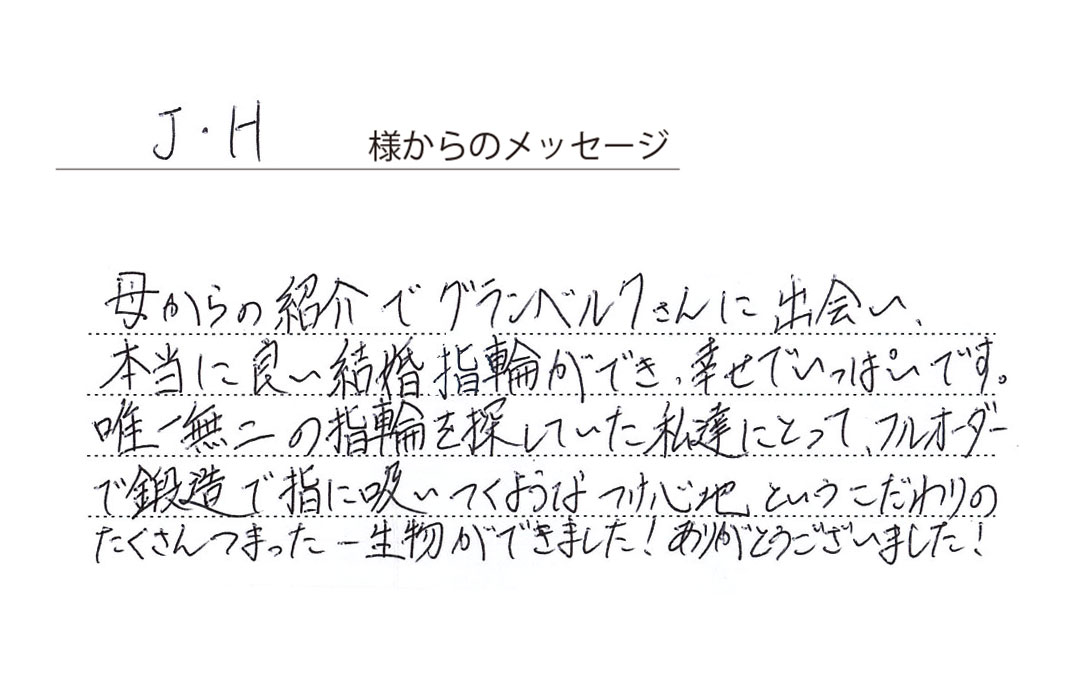 J・H 様からのメッセージ
母からの紹介でグランベルクさんに出会い、
本当に良い結婚指輪ができ、幸せでいっぱいです。
唯一無二の指輪を探していた私達にとって、フルオーダー
で鍛造で指に吸いつくようなつけ心地、というこだわりの
たくさんつまった一生物ができました！ありがとうございました！